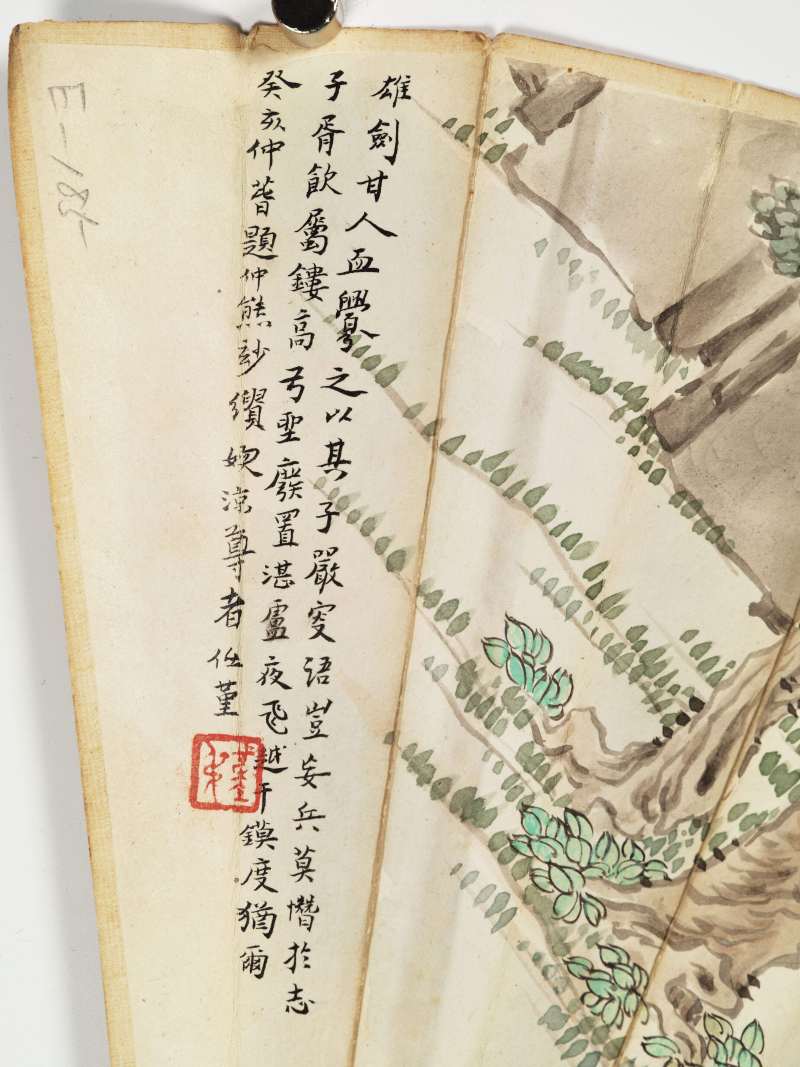 雄劍甘人血釁之以其子嚴叟語豈妄兵莫憯於志
子胥飲屬鏤高弓聖廢置湛盧夜飛越干鏌度猶爾
癸亥仲萅題仲熊玅纘涼尊者任堇
堇叔
E-185